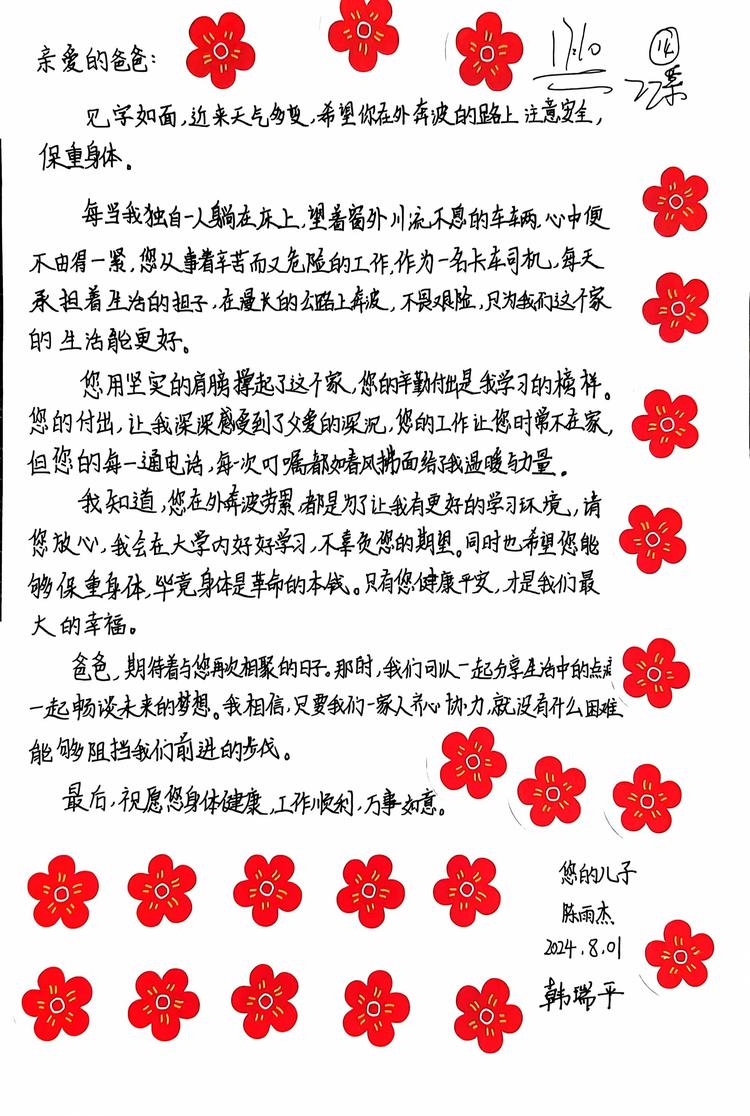 亲爱的爸爸:
17:10
14
见字如面,近来天气多变,希望你在外奔波的路上注意安全,
保重身体。
每当我独自一人躺在床上,望着窗外川流不息的车车辆,心中便
不由得一紧,您从事着辛苦而又危险的工作,作为一名卡车司机,每天
承担着生活的担子,在漫长的公路上奔波,不畏艰险,只为我们这个家
的生活能更好。
您用坚实的肩膀撑起了这个家,您的辛勤付出是我学习的榜样。
您的付出,让我深深感受到了父爱的深沉,您的工作让您时常不在家,
但您的每一通电话,每一次叮嘱都如春风拂面给了我温暖与力量。
我知道,您在外奔波劳累,都是为了让我有更好的学习环境,请
您放心,我会在大学内好好学习,不辜负您的期望。同时也希望您能
够保重身体,毕竟身体是革命的本钱。只有您健康平安,才是我们最
大的幸福。
爸爸,期待着与您再次相聚的日子。那时,我们可以一起分享生活中的点滴
一起畅谈未来的梦想。我相信,只要我们一家人齐心协力,就没有什么困难
能够阻挡我们前进的步伐。
最后,祝愿您身体健康,工作顺利,万事如意。
您的儿子
陈雨杰
2024.8.01
韩瑞平